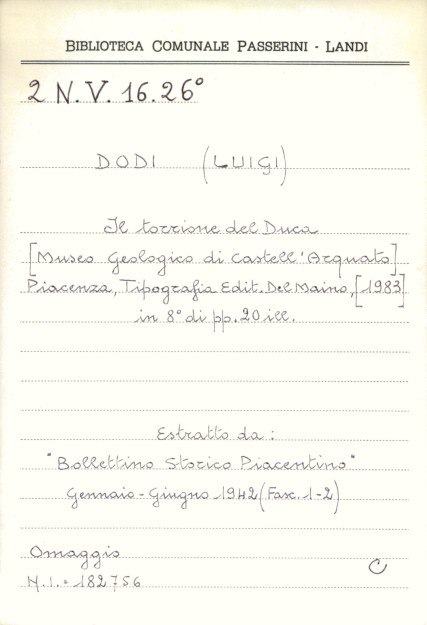 BIBLIOTECA COMUNALE PASSERINI - LANDI
2 N.V. 16.26°
DODI (LUIGI)
Il torrione del Duca
[Museo Geologico di Castell'Arquato]
Piacenza, Tipografia Edit. Del Maino, [1983]
in 8° di pp. 20 ill.
Estratto da:
"Bollettino Storico Piacentino"
Gennaio - Giugno 1942 (Fasc. 1-2)
Omaggio
N.I. = 182756
C